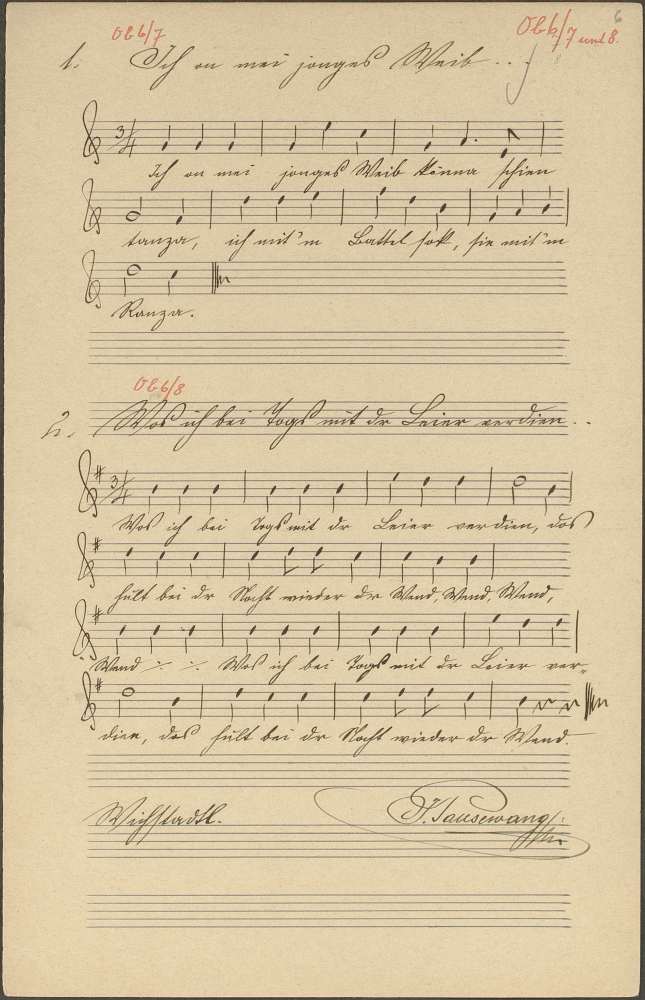 6
Ob 6/7
Ob 6/7 und 8.
1. Ich on mei jonges Weib...
3/4
Ich on mei jonges Weib könna schien
tanza, ich mit'm Battelsok, sie mit'm
Ranza.
Ob 6/8
2. Wos ich bei Togs mit dr Leier verdien...
3/4
Wos ich bei Togs mit dr Leier verdien, dos
hült bei dr Nocht wieder dr Wend, Wend, Wend,
Wend Wos ich bei Togs mit dr Leier ver-
dien, dos hült bei dr Nocht wieder dr Wend.
Wichstadtl.
J. Tausewang